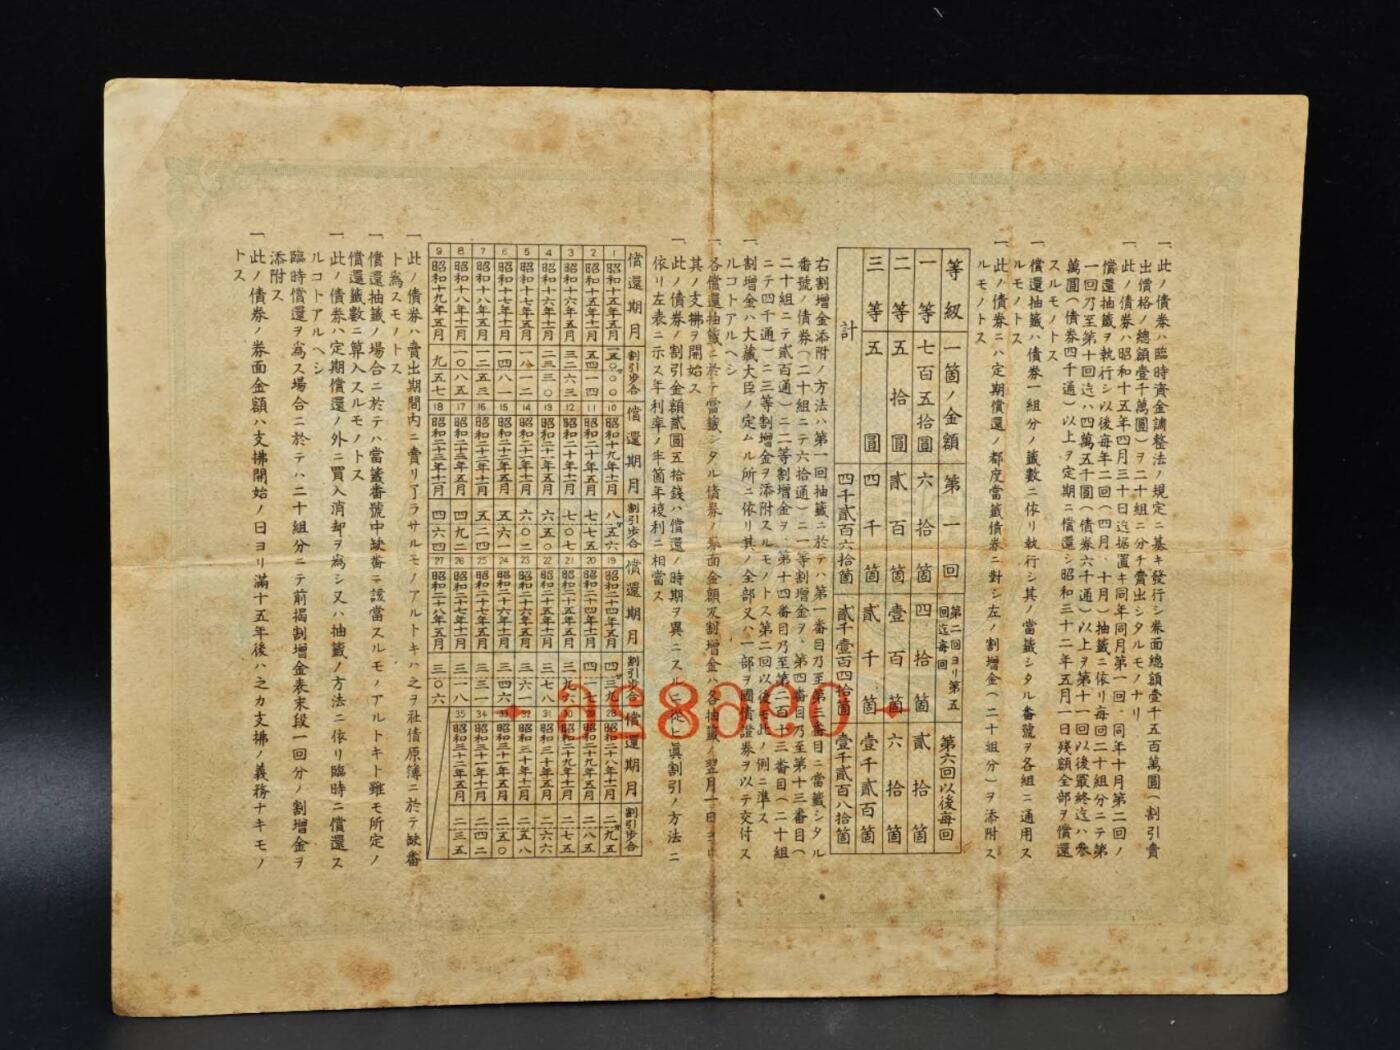 一、此ノ債券ハ臨時資金調整法ノ規定ニ基キ發行シ券面總額壹千五百萬圓(割引賣
出價格ノ總額壹千萬圓)ヲ二十組ニ分チ賣出シタルモノナリ
一、此ノ債券ハ昭和十五年四月三十日迄据置キ同年同月第一回、同年十月第二回ノ
償還抽籤ヲ執行シ以後每年二回(四月、十月)抽籤ニ依リ每回二十組分ニテ第
一回乃至第十回迄ハ四萬五千圓(債券六千通)以上ヲ第十一回以後最終迄ハ參
萬圓(債券四千通)以上ヲ定期ニ償還シ昭和三十二年五月一日殘額全部ヲ償還
スルモノトス
一、償還抽籤ハ債券一組分ノ籤數ニ依リ執行シ其ノ當籤シタル番號ヲ各組ニ通用ス
ルモノトス
一、此ノ債券ニハ定期償還ノ都度當籤債券ニ對シ左ノ割增金(二十組分)ヲ添附ス
ルモノトス
等級 一箇ノ金額 第一回 第二回ヨリ第五回迄每回 第六回以後每回
一等 七百五拾圓 六拾箇 四拾箇 貳拾箇
二等 五拾圓 貳百箇 壹百箇 六拾箇
三等 五圓 四千箇 貳千箇 壹千貳百箇
計 四千貳百六拾箇 貳千壹百四拾箇 壹千貳百八拾箇
右割增金添附ノ方法ハ第一回抽籤ニ於テハ第一番目乃至第三番目ニ當籤シタル
番號ノ債券(二十組ニテ六拾通)ニ一等割增金ヲ、第四番目乃至第十三番目(
二十組ニテ貳百通)ニ二等割增金ヲ、第十四番目乃至第二百十三番目(二十組
ニテ四千通)ニ三等割增金ヲ添附スルモノトス第二回以後モ此ノ例ニ準ス
一、割增金ハ大藏大臣ノ定ムル所ニ依リ其ノ全部又ハ一部ヲ國債證券ヲ以テ交付ス
ルコトアルヘシ
一、各償還抽籤ニ於テ當籤シタル債券ノ券面金額及割增金ハ各抽籤ノ翌月一日ヨリ
其ノ支拂ヲ開始ス
一、此ノ債券ノ割引金額貳圓五拾錢ハ償還ノ時期ヲ異ニスルニ從ヒ眞割引ノ方法ニ
依リ左表ニ示ス年利率ノ半箇年複利ニ相當ス
償還期月 割引步合 償還期月 割引步合 償還期月 割引步合 償還期月 割引步合
1 昭和十五年五月 一五〇〇〇 10 昭和十九年十一月 八五六 19 昭和二十四年五月 四三九 28 昭和二十八年十一月 二九五
2 昭和十五年十一月 五四一四 11 昭和二十年五月 七七五 20 昭和二十四年十一月 四一七 29 昭和二十九年五月 二八五
3 昭和十六年五月 三二六三 12 昭和二十年十一月 七〇七 21 昭和二十五年五月 三九六 30 昭和二十九年十一月 二七五
4 昭和十六年十一月 二三三〇 13 昭和二十一年五月 六五〇 22 昭和二十五年十一月 三七八 31 昭和三十年五月 二六六
5 昭和十七年五月 一八一二 14 昭和二十一年十一月 六〇二 23 昭和二十六年五月 三六一 32 昭和三十年十一月 二五八
6 昭和十七年十一月 一四八一 15 昭和二十二年五月 五六一 24 昭和二十六年十一月 三四六 33 昭和三十一年五月 二五〇
7 昭和十八年五月 一二五三 16 昭和二十二年十一月 五二四 25 昭和二十七年五月 三三一 34 昭和三十一年十一月 二四二
8 昭和十八年十一月 一〇八五 17 昭和二十三年五月 四九二 26 昭和二十七年十一月 三一八 35 昭和三十二年五月 二三五
9 昭和十九年五月 九五七 18 昭和二十三年十一月 四六四 27 昭和二十八年五月 三〇六
一、此ノ債券ハ賣出期間內ニ賣リ了ラサルモノアルトキハ之ヲ社債原簿ニ於テ缺番
ト爲スモノトス
一、償還抽籤ノ場合ニ於テハ當籤番號中缺番ニ該當スルモノアルトキト雖モ所定ノ
償還籤數ニ算入スルモノトス
一、此ノ債券ハ定期償還ノ外ニ買入消却ヲ爲シ又ハ抽籤ノ方法ニ依リ臨時ニ償還ス
ルコトアルヘシ
臨時償還ヲ爲ス場合ニ於テハ二十組分ニテ前揭割增金表末段一回分ノ割增金ヲ
添附ス
一、此ノ債券ノ券面金額ハ支拂開始ノ日ヨリ滿十五年後ハ之カ支拂ノ義務ナキモノ
トス
096850